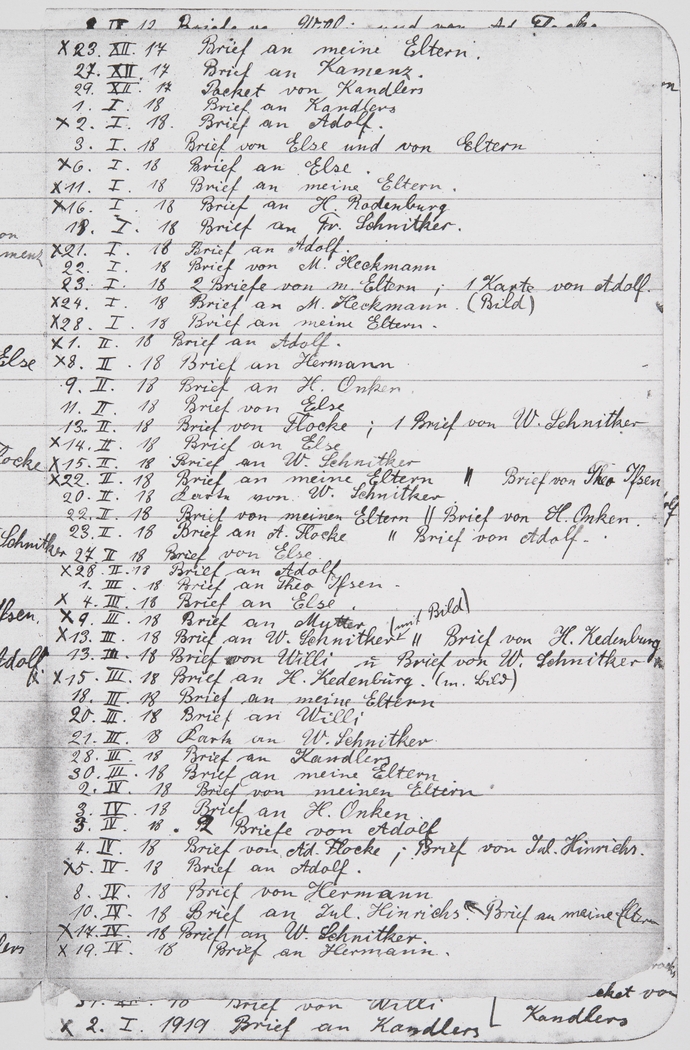 X 23. XII. 17 Brief an meine Eltern.
27. XII. 17 Brief an Kamenz.
29. XII. 17 Packet von Kandlers
1. I. 18 Brief an Kandlers
X 2. I. 18. Brief an Adolf.
3. I. 18 Brief von Else und von Eltern
X 6. I. 18 Brief an Else.
X 11. I. 18 Brief an meine Eltern.
X 16. I. 18 Brief an H. Rodenburg
18. I. 18 Brief an Fr. Schnitker.
X 21. I. 18 Brief an Adolf.
22. I. 18 Brief von M. Heckmann
23. I. 18 2 Briefe von m. Eltern ; 1 Karte von Adolf.
X 24. I. 18 Brief an M. Heckmann. (Bild)
X 28. I. 18 Brief an meine Eltern.
X 1. II. 18 Brief an Adolf.
X 8. II. 18 Brief an Hermann
9. II. 18 Brief an H. Onken.
11. II. 18 Brief von Else
13. II. 18 Brief von Flocke ; 1 Brief von W. Schnitker
X 14. II 18 Brief an Else
X 15. II. 18 Brief an W. Schnitker
X 22. II. 18 Brief an meine Eltern " Brief von Theo Ifsen
20. II. 18 Karte von W. Schnitker
22. II. 18 Brief von meinen Eltern " Brief von H. Onken
23. II. 18 Brief an A. Flocke " Brief von Adolf.
27 II 18 Brief von Else.
X 28 II. 18 Brief an Adolf
1. III. 18 Brief an Theo Ifsen.
X 4. III. 18 Brief an Else.
X 9. III. 18 Brief an Mutter (mit Bild)
X 13. III. 18 Brief an W. Schnitker " Brief von H. Kedenburg
13. III. 18 Brief von Willi u Brief von W. Schnitker
X 15. III. 18 Brief an H. Kedenburg. (m. Bild)
18. III. 18 Brief an meine Eltern
20. III. 18 Brief an Willi
21. III. 18 Karte an W. Schnitker
28. III. 18 Brief an Kandlers
30. III. 18 Brief an meine Eltern
2. IV. 18 Brief von meinen Eltern
3. IV 18 Brief an H. Onken.
3 IV. 18. 2 Briefe von Adolf
4. IV. 18 Brief von Ad. Flocke ; Brief von Jul. Hinrichs.
X 5. IV. 18 Brief an Adolf.
8. IV. 18 Brief von Hermann
10. IV. 18 Brief an Jul. Hinrichs Brief an meine Eltern
X 17. IV. 18 Brief an W. Schnitker.
X 19. IV. 18 Brief an Hermann.
Brief von Willi
X 2. I. 1919 Brief an Kandlers
Kandlers